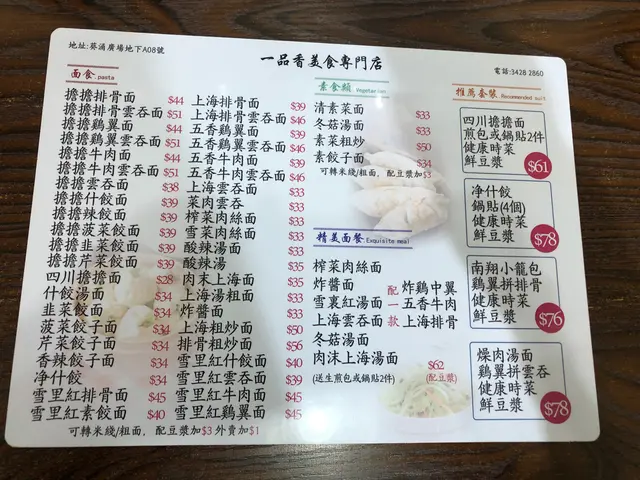 地址:葵涌廣場地下A08號
一品香美食專門店
電話:3428 2860
面食 pasta
擔擔排骨面 $44
擔擔排骨雲吞面 $51
擔擔鷄翼面 $44
擔擔鷄翼雲吞面 $51
擔擔牛肉面 $44
擔擔牛肉雲吞面 $51
擔擔雲吞面 $38
擔擔什餃面 $39
擔擔辣餃面 $39
擔擔菠菜餃面 $39
擔擔韭菜餃面 $39
擔擔芹菜餃面 $39
四川擔擔面 $28
什餃湯面 $34
韭菜餃面 $34
菠菜餃子面 $34
芹菜餃子面 $34
香辣餃子面 $34
净什餃 $34
雪里紅排骨面 $45
雪里紅素餃面 $40
上海排骨面 $39
上海排骨雲吞面 $46
五香鷄翼面 $39
五香鷄翼雲吞面 $46
五香牛肉面 $39
五香牛肉雲吞面 $46
上海雲吞面 $33
菜肉雲吞 $33
榨菜肉絲面 $33
雪菜肉絲面 $33
酸辣湯面 $33
酸辣湯 $35
肉末上海面 $35
上海湯粗面 $33
炸醬面 $33
上海粗炒面 $50
排骨粗炒面 $56
雪里紅什餃面 $40
雪里紅雲吞面 $39
雪里紅牛肉面 $45
雪里紅鷄翼面 $45
可轉米綫/粗面，配豆漿加$3 外賣加$1
素食類 Vegetarian
清素菜面 $33
冬菇湯面 $33
素菜粗炒 $50
素餃子面 $34
可轉米綫/粗面，配豆漿加$3
精美面餐 Exquisite meal
榨菜肉絲面
炸醬面
雪裏紅湯面
上海雲吞面
冬菇湯面
肉沫上海湯面
(送生煎包或鍋貼2件)
配一款
炸鷄中翼
五香牛肉
上海排骨
$62
(配豆漿)
推薦套裝 Recommended suit
四川擔擔面
煎包或鍋貼2件
健康時菜
鮮豆漿
$61
净什餃
鍋貼(4個)
健康時菜
鮮豆漿
$78
南翔小籠包
鷄翼拼排骨
健康時菜
鮮豆漿
$76
燥肉湯面
鷄翼拼雲吞
健康時菜
鮮豆漿
$78